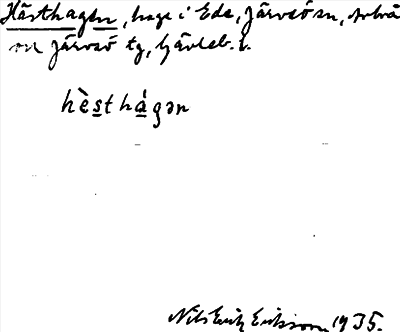 Hästhagen, hage i Ede, Järvsö sn, Arbrå
och Järvsö tg, Gävleb. l.
hèsthágən
Nils Erik Eriksson 1935.